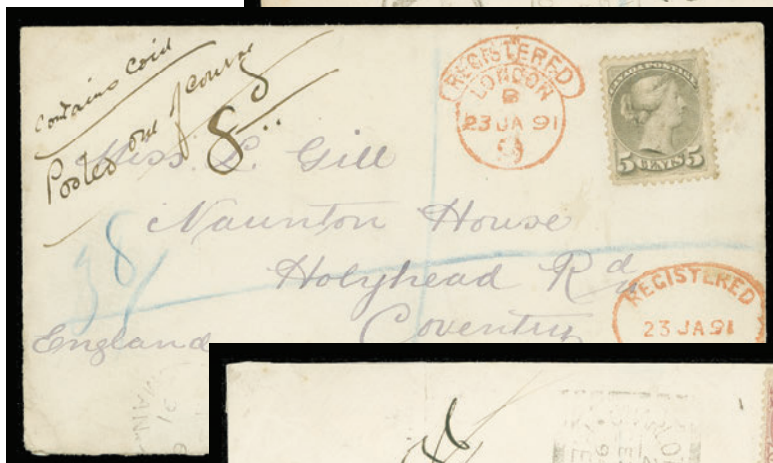 Contains Coin
Posted out of course
8d
REGISTERED
LONDON
B
23 JA 91
CANADA POSTAGE
5 CENTS 5
Miss. L. Gill
Naunton House
Holyhead Rd
Coventry
England
8
REGISTERED
23 JA 91